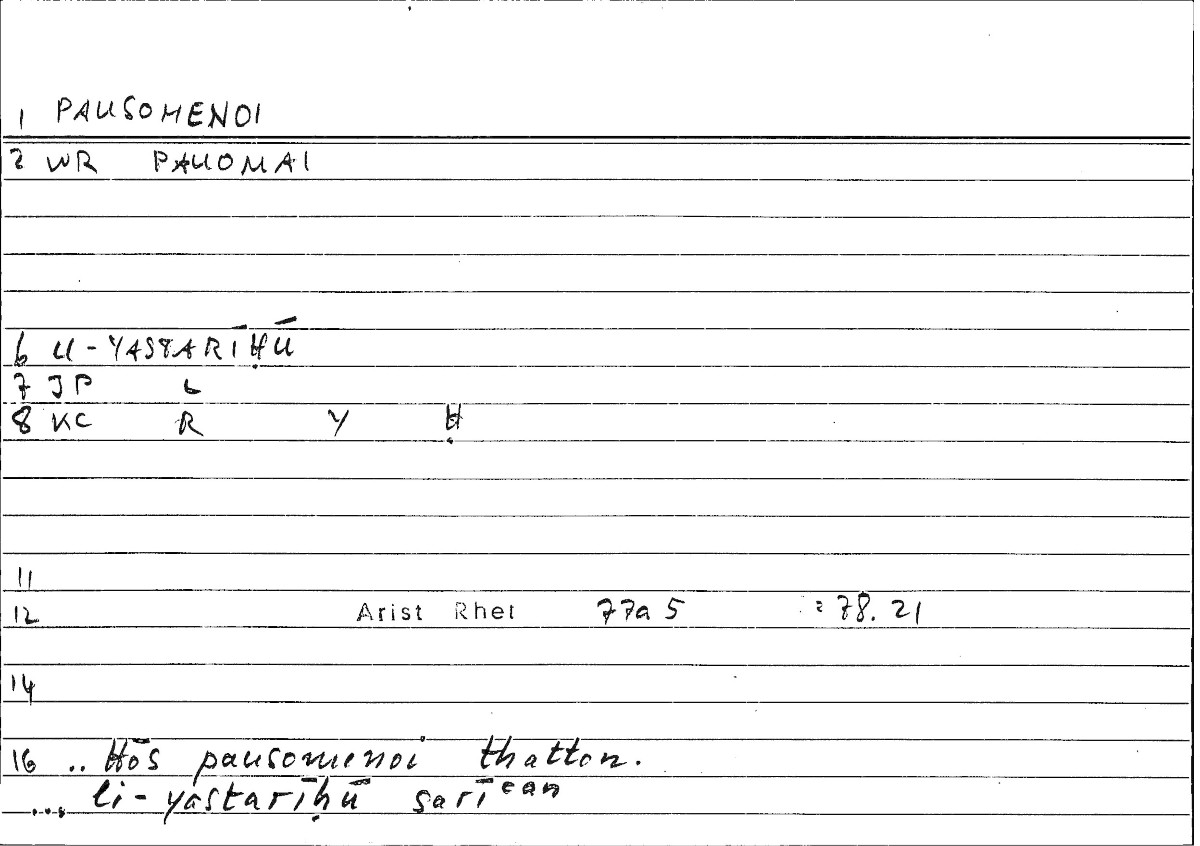 1 PAUSOMENOI
2 WR PAUOMAI
6 U-YASTARĪḤŪ
7 JP L
8 KC R Y Ḥ
11
12 Arist Rhet 77a 5 = 78. 21
14
16 .. Hōs pausomenoi thatton.
.... li-yastarīḥū sarīᶜan